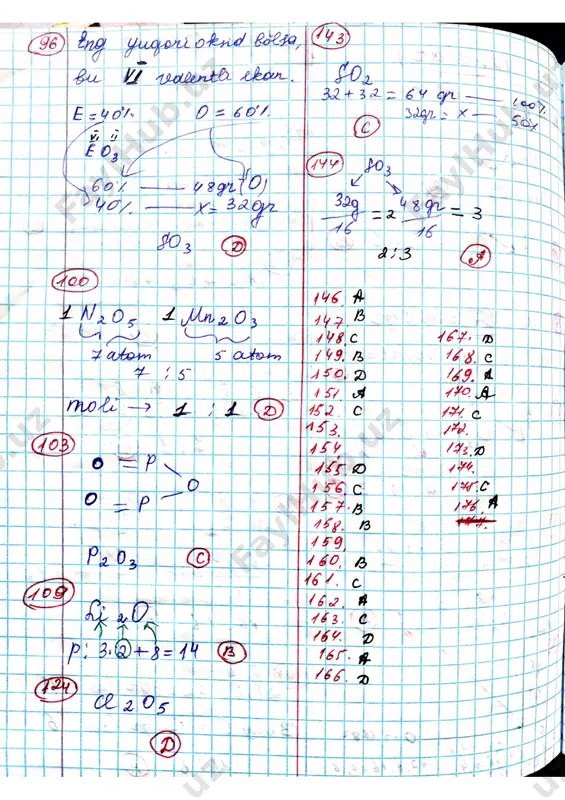 96 Eng yuqori oksid bo'lsa,
bu VI valentli ekan.
E = 40% O = 60%
VI II
E O3
60% — 48gr (O)
40% — x = 32gr
SO3 D
100
1 N2O5 1 Mn2O3
7 atom 5 atom
7 : 5
moli → 1 : 1 D
103
O = P
O
O = P
P2O3 C
109
Li2O
p: 3·2 + 8 = 14 B
124
Cl2O5
D
143
SO2
32 + 32 = 64 gr — 100%
32gr = x — 50%
C
144 SO3
32g/16 = 2 48gr/16 = 3
2 : 3 A
146. A
147. B
148. C
149. B
150. D
151. A
152. C
153.
154.
155. D
156. C
157. B
158. B
159.
160. B
161. C
162. A
163. C
164. D
165. A
166. D
167. D
168. C
169. A
170. A
171. C
172.
173. D
174.
175. C
176. A
FaylHub.uz
FaylHub.uz
FaylHub.uz